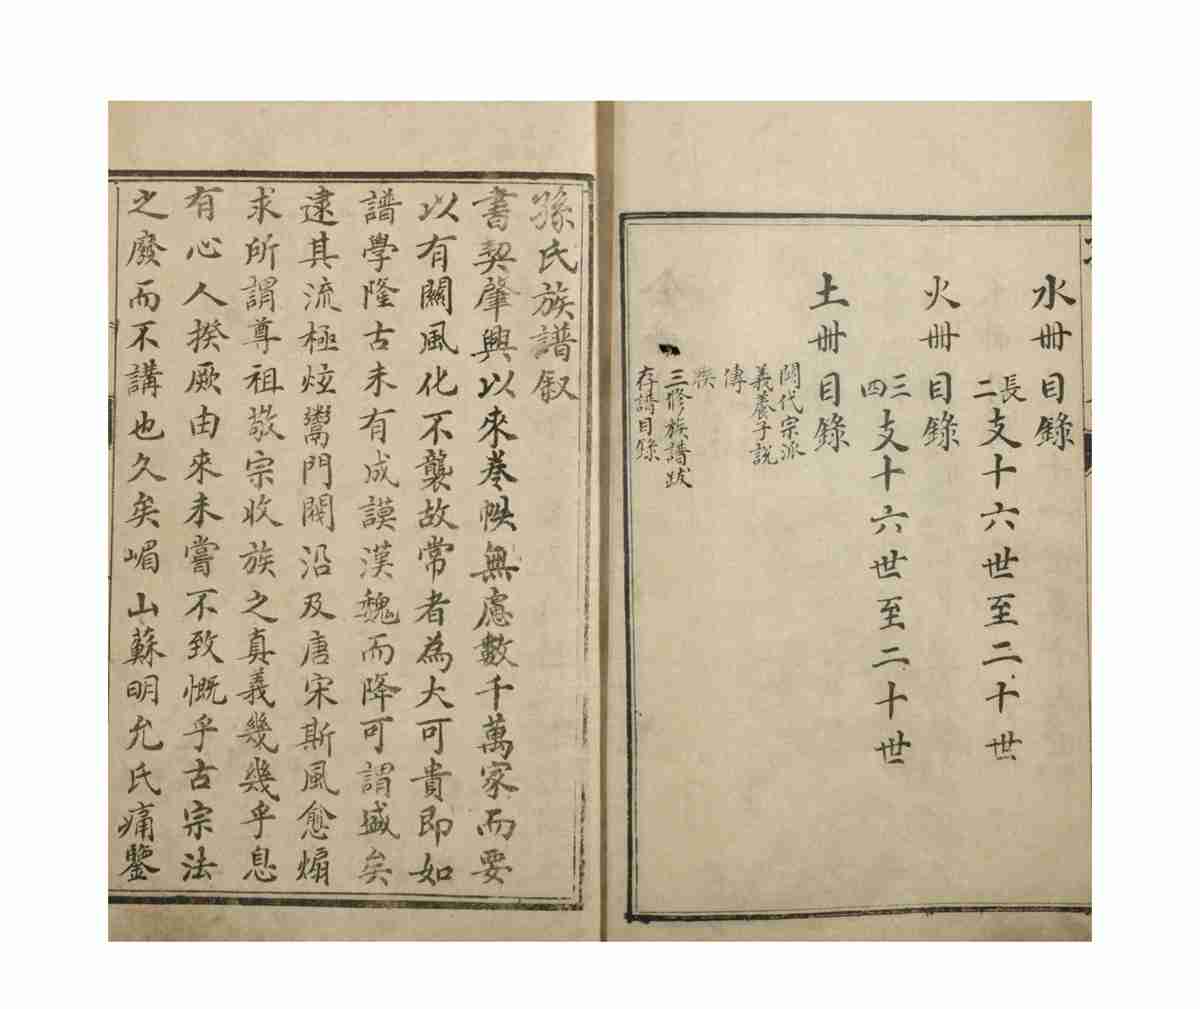 水冊目錄
長二支十六世至二十世
火冊目錄
三四支十六世至二十世
土冊目錄
闗代宗派
義養子説
傳
三修族譜跋
存譜目錄
孫氏族譜叙
書契肇興以來卷帙無慮數千萬家而要
以有關風化不襲故常者為大可貴即如
譜學隆古未有成謨漢魏而降可謂盛矣
逮其流極炫鬻門閥沿及唐宋斯風愈煽
求所謂尊祖敬宗收族之真義幾幾乎息
有心人揆厥由來未嘗不致慨乎古宗法
之廢而不講也久矣嵋山蘇明允氏痛鑒